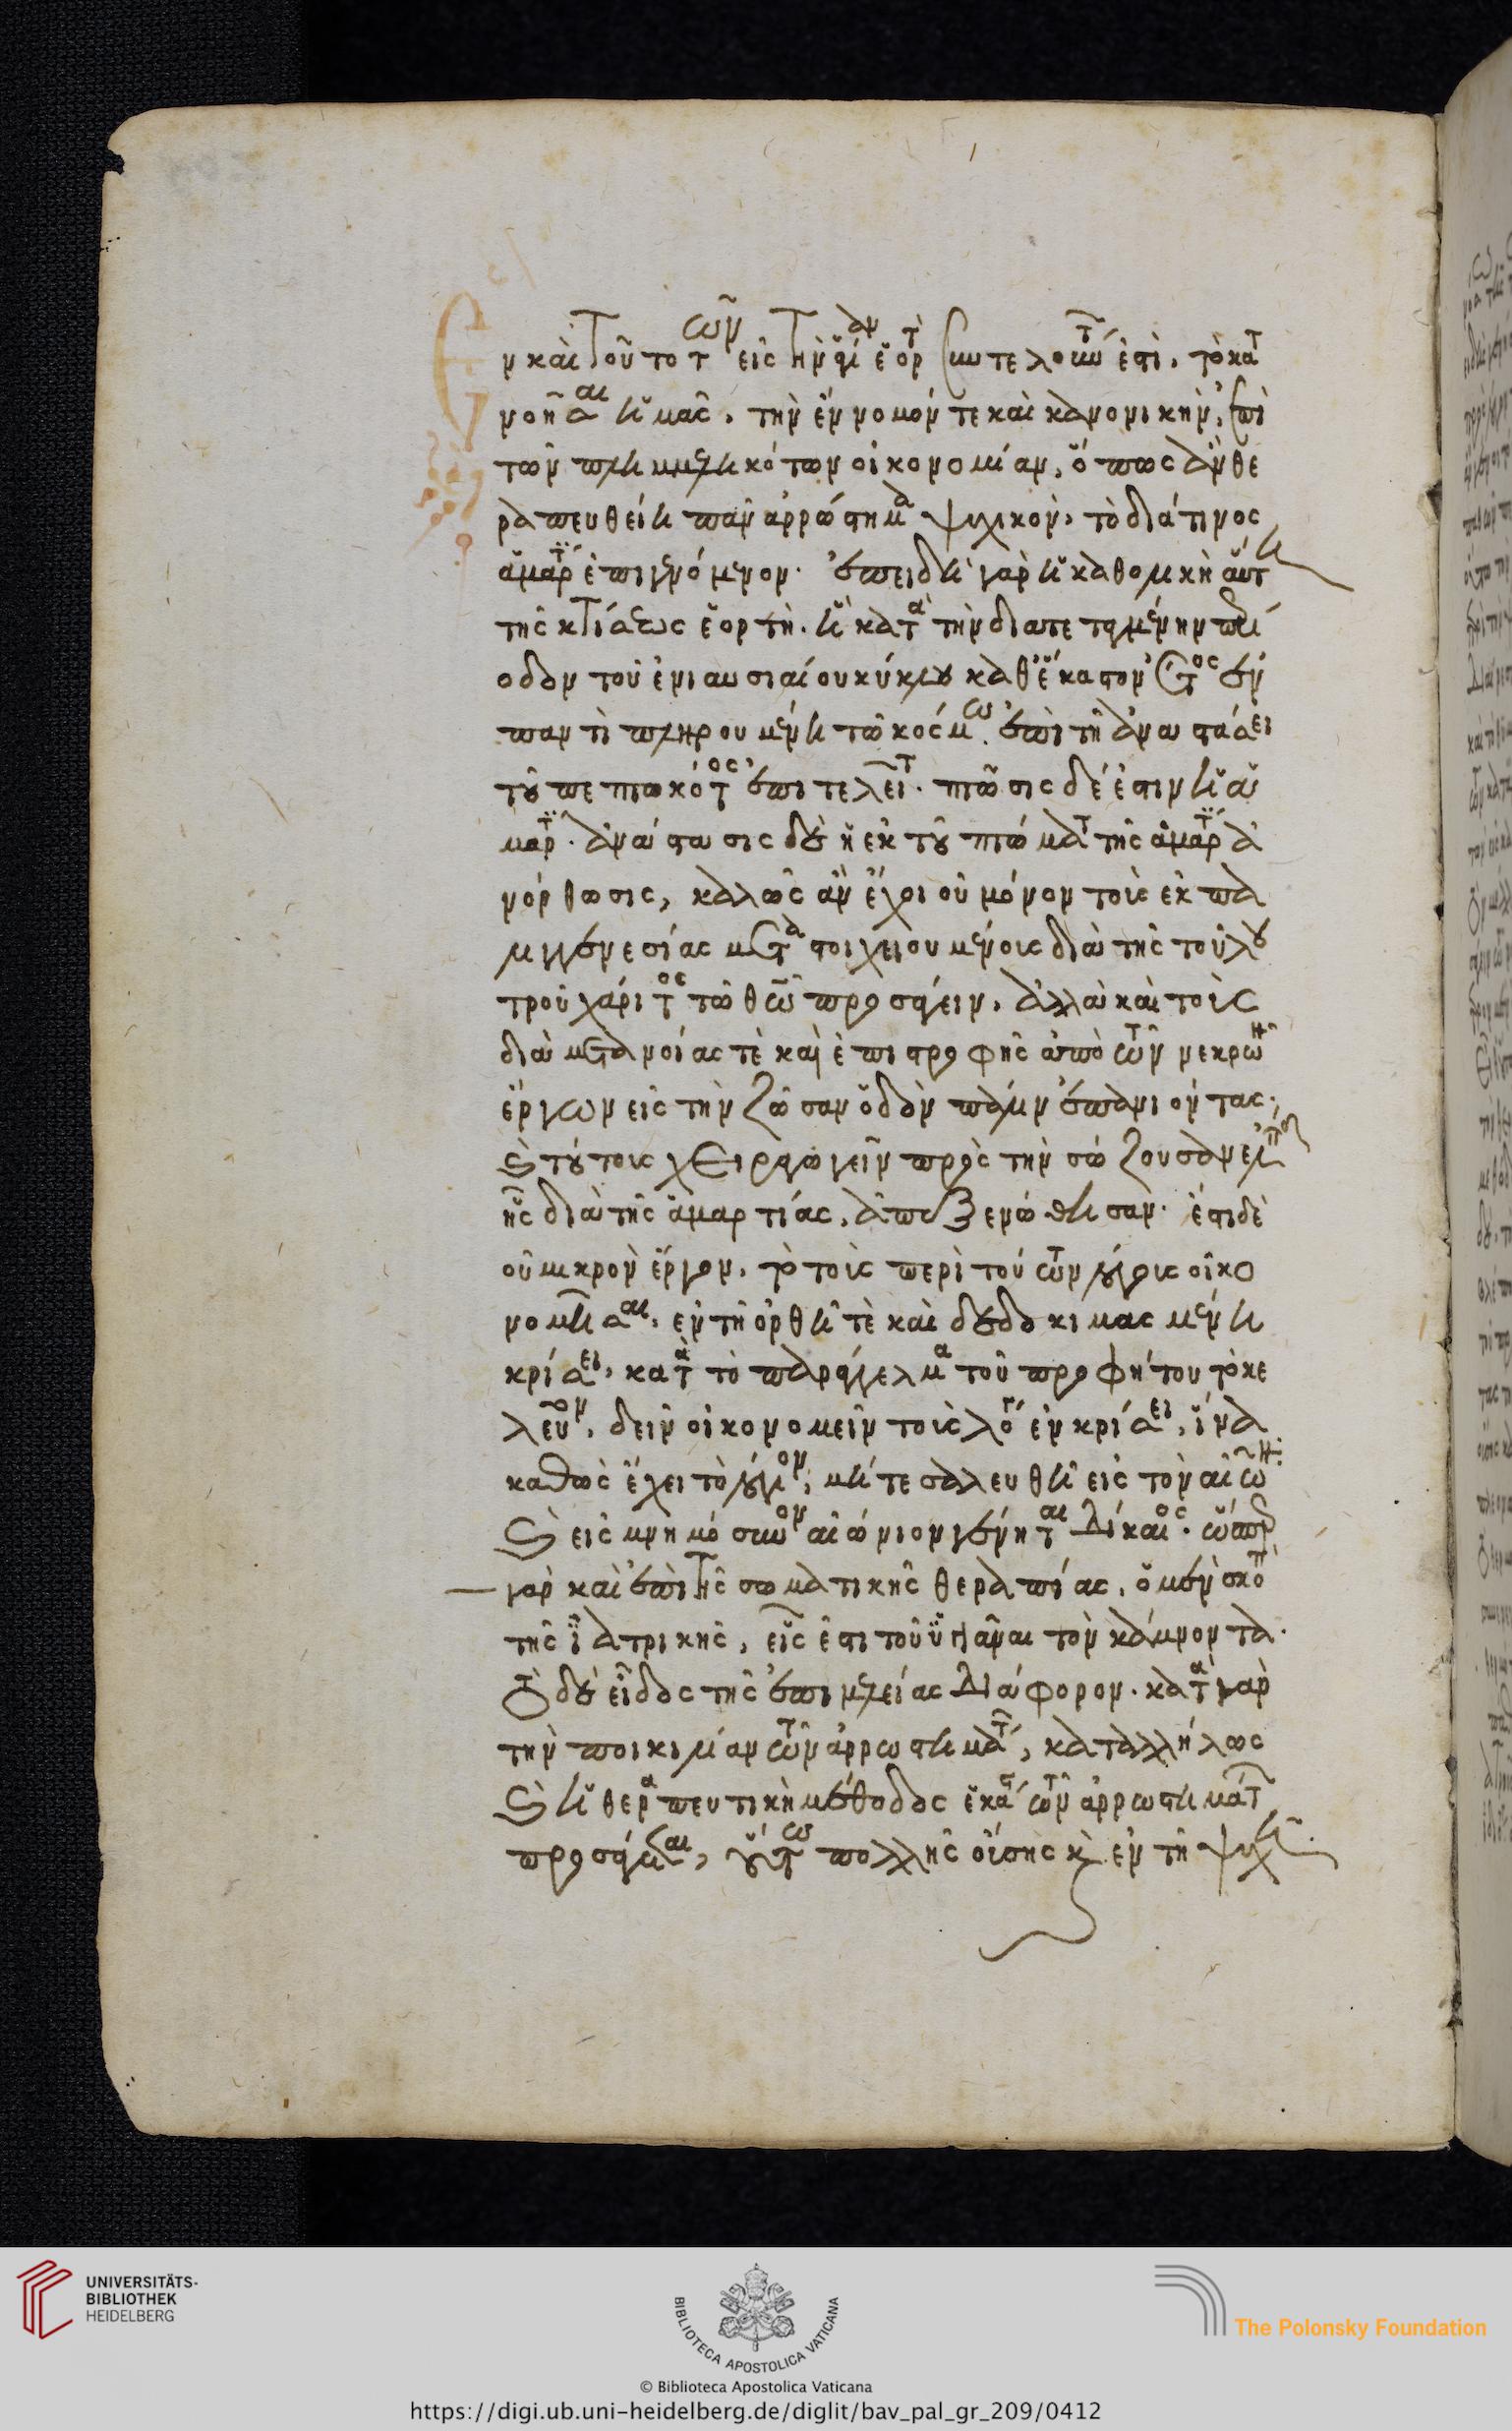 Εν καὶ τοῦτο τῶν εἰς τὴν ἁγίαν ἑορτ συντελούντ ἐστὶ, τὸ κατ
νοῆσαι ἡμᾶς, τὴν ἔννομόν τε καὶ κανονικὴν, ἐπὶ
τῶν πλημμεληκότων οἰκονομίαν, ὅπως ἂν θε
ραπευθείη πᾶν ἀρρώστημα ψυχικὸν, τὸ διά τινος
ἁμαρτ ἐπιγενόμενον. ἐπειδὴ γὰρ ἡ καθολικὴ αὕτη
τῆς κτίσεως ἑορτὴ. ἡ κατὰ τὴν διατεταγμένην περί
οδον τοῦ ἐνιαυσιαίου κύκλου καθ' ἕκαστον ἔτος ἐν
παντὶ πληρουμένη τῶ κόσμω. ἐπὶ τῆ ἀναστάσει
τοῦ πεπτωκότος ἐπιτελεῖτ. πτῶσις δέ ἐστιν ἡ ἁ
μαρτ. ἀνάστασις δὲ ἡ ἐκ τοῦ πτώματ τῆς ἁμαρτ ἀ
νόρθωσις, καλῶς ἂν ἔχοι οὐ μόνον τοὺς ἐκ πα
λιγγενεσίας μεταστοιχειουμένους διὰ τῆς τοῦ λου
τροῦ χάριτος τῶ θῶ προσάγειν, ἀλλὰ καὶ τοὺς
διὰ μετανοίας τὲ καὶ ἐπιστροφῆς ἀπὸ τῶν νεκρῶν
ἔργων εἰς τὴν ζῶσαν ὁδὸν πάλιν ἐπανιόντας,
καὶ τούτους χειραγωγεῖν πρὸς τὴν σώζουσαν ἐλπ
ἧς διὰ τῆς ἁμαρτίας, ἀπεξενώθησαν. ἔστι δὲ
οὐ μικρὸν ἔργον, τὸ τοὺς περὶ τούτων λόγους οἰκο
νομῆσαι, ἐν τῆ ὀρθῆ τὲ καὶ δεδοκιμασμένη
κρίσει, κατὰ τὸ παράγγελμα τοῦ προφήτου τὸ κε
λεῦον, δεῖν οἰκονομεῖν τοὺς λόγ ἐν κρίσει, ἵνα
καθὼς ἔχει τὸ λόγιον, μήτε σαλευθῆ εἰς τὸν αἰῶν.
καὶ εἰς μνημόσυνον αἰώνιον γένηται δίκαιος. ὥσπερ
γὰρ καὶ ἐπὶ τῆς σωματικῆς θεραπείας, ὁ μὲν σκοπ
τῆς ἰατρικῆς, εἷς ἐστι τοῦ ὑγιᾶναι τὸν κάμνοντα.
τὸ δὲ εἶδος τῆς ἐπιμελείας διάφορον. κατὰ γὰρ
τὴν ποικιλίαν τῶν ἀρρωστημάτ, καταλλήλως
καὶ ἡ θεραπευτικὴ μέθοδος ἑκάστ τῶν ἀρρωστημάτ
προσάγεται, οὕτω πολλῆς οὔσης κ ἐν τῆ ψυχῆ
UNIVERSITÄTS-
BIBLIOTHEK
HEIDELBERG
BIBLIOTECA APOSTOLICA VATICANA
© Biblioteca Apostolica Vaticana
The Polonsky Foundation
https://digi.ub.uni-heidelberg.de/diglit/bav_pal_gr_209/0412